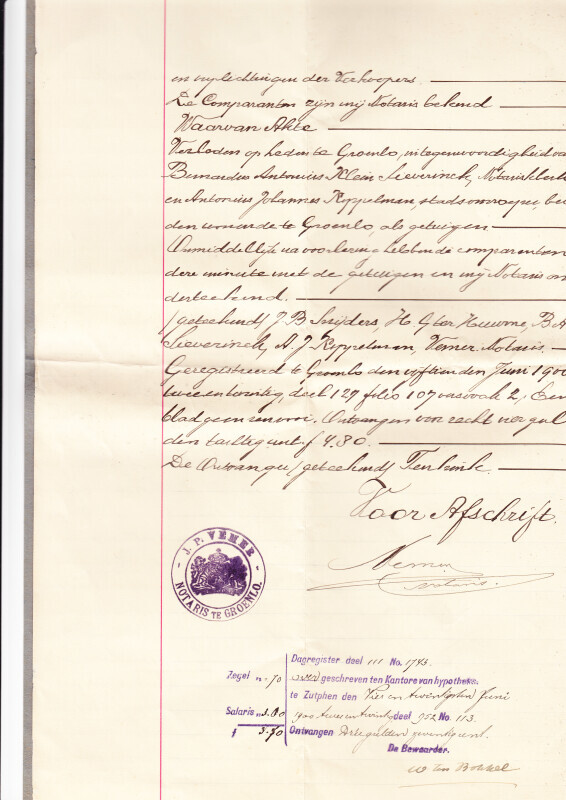 en verplichtingen der Verkoopers
De Comparanten zijn mij Notaris bekend
Waarvan Akte
Verleden op heden te Groenlo, in tegenwoordigheid va
Bernardus Antonius Klein Sieverinck, Notarisklerk
en Antonius Johannes Koppelman, stadsomroeper, bei
den wonende te Groenlo, als getuigen
Onmiddellijk na voorlezing hebben de comparanten
deze minute met de getuigen en mij Notaris on
derteekend.
(geteekend) J B Snijders, H. G. ter Huurne, B A
Sieverinck, A. J. Koppelman, Vemer Notaris.
Geregistreerd te Groenlo den vijftienden Juni 1900
twee en twintig deel 127 folio 107 vak 2, Een
blad geen renvooi. Ontvangen voor recht vier gul
den tachtig cent f 4.80.
De Ontvanger (geteekend) Tenkink.
Voor Afschrift.
Vemer
notaris.
J. P. VEMER
NOTARIS TE GROENLO.
Dagregister deel 111 No. 1743.
Zegel „ 70
over geschreven ten Kantore van hypotheke.
te Zutphen den Vier en twintigsten Juni
1900 twee en twintig deel 952 No 113.
Salaris „ 3.00
f 3.70
Ontvangen Drie gulden zeventig cent.
De Bewaarder.